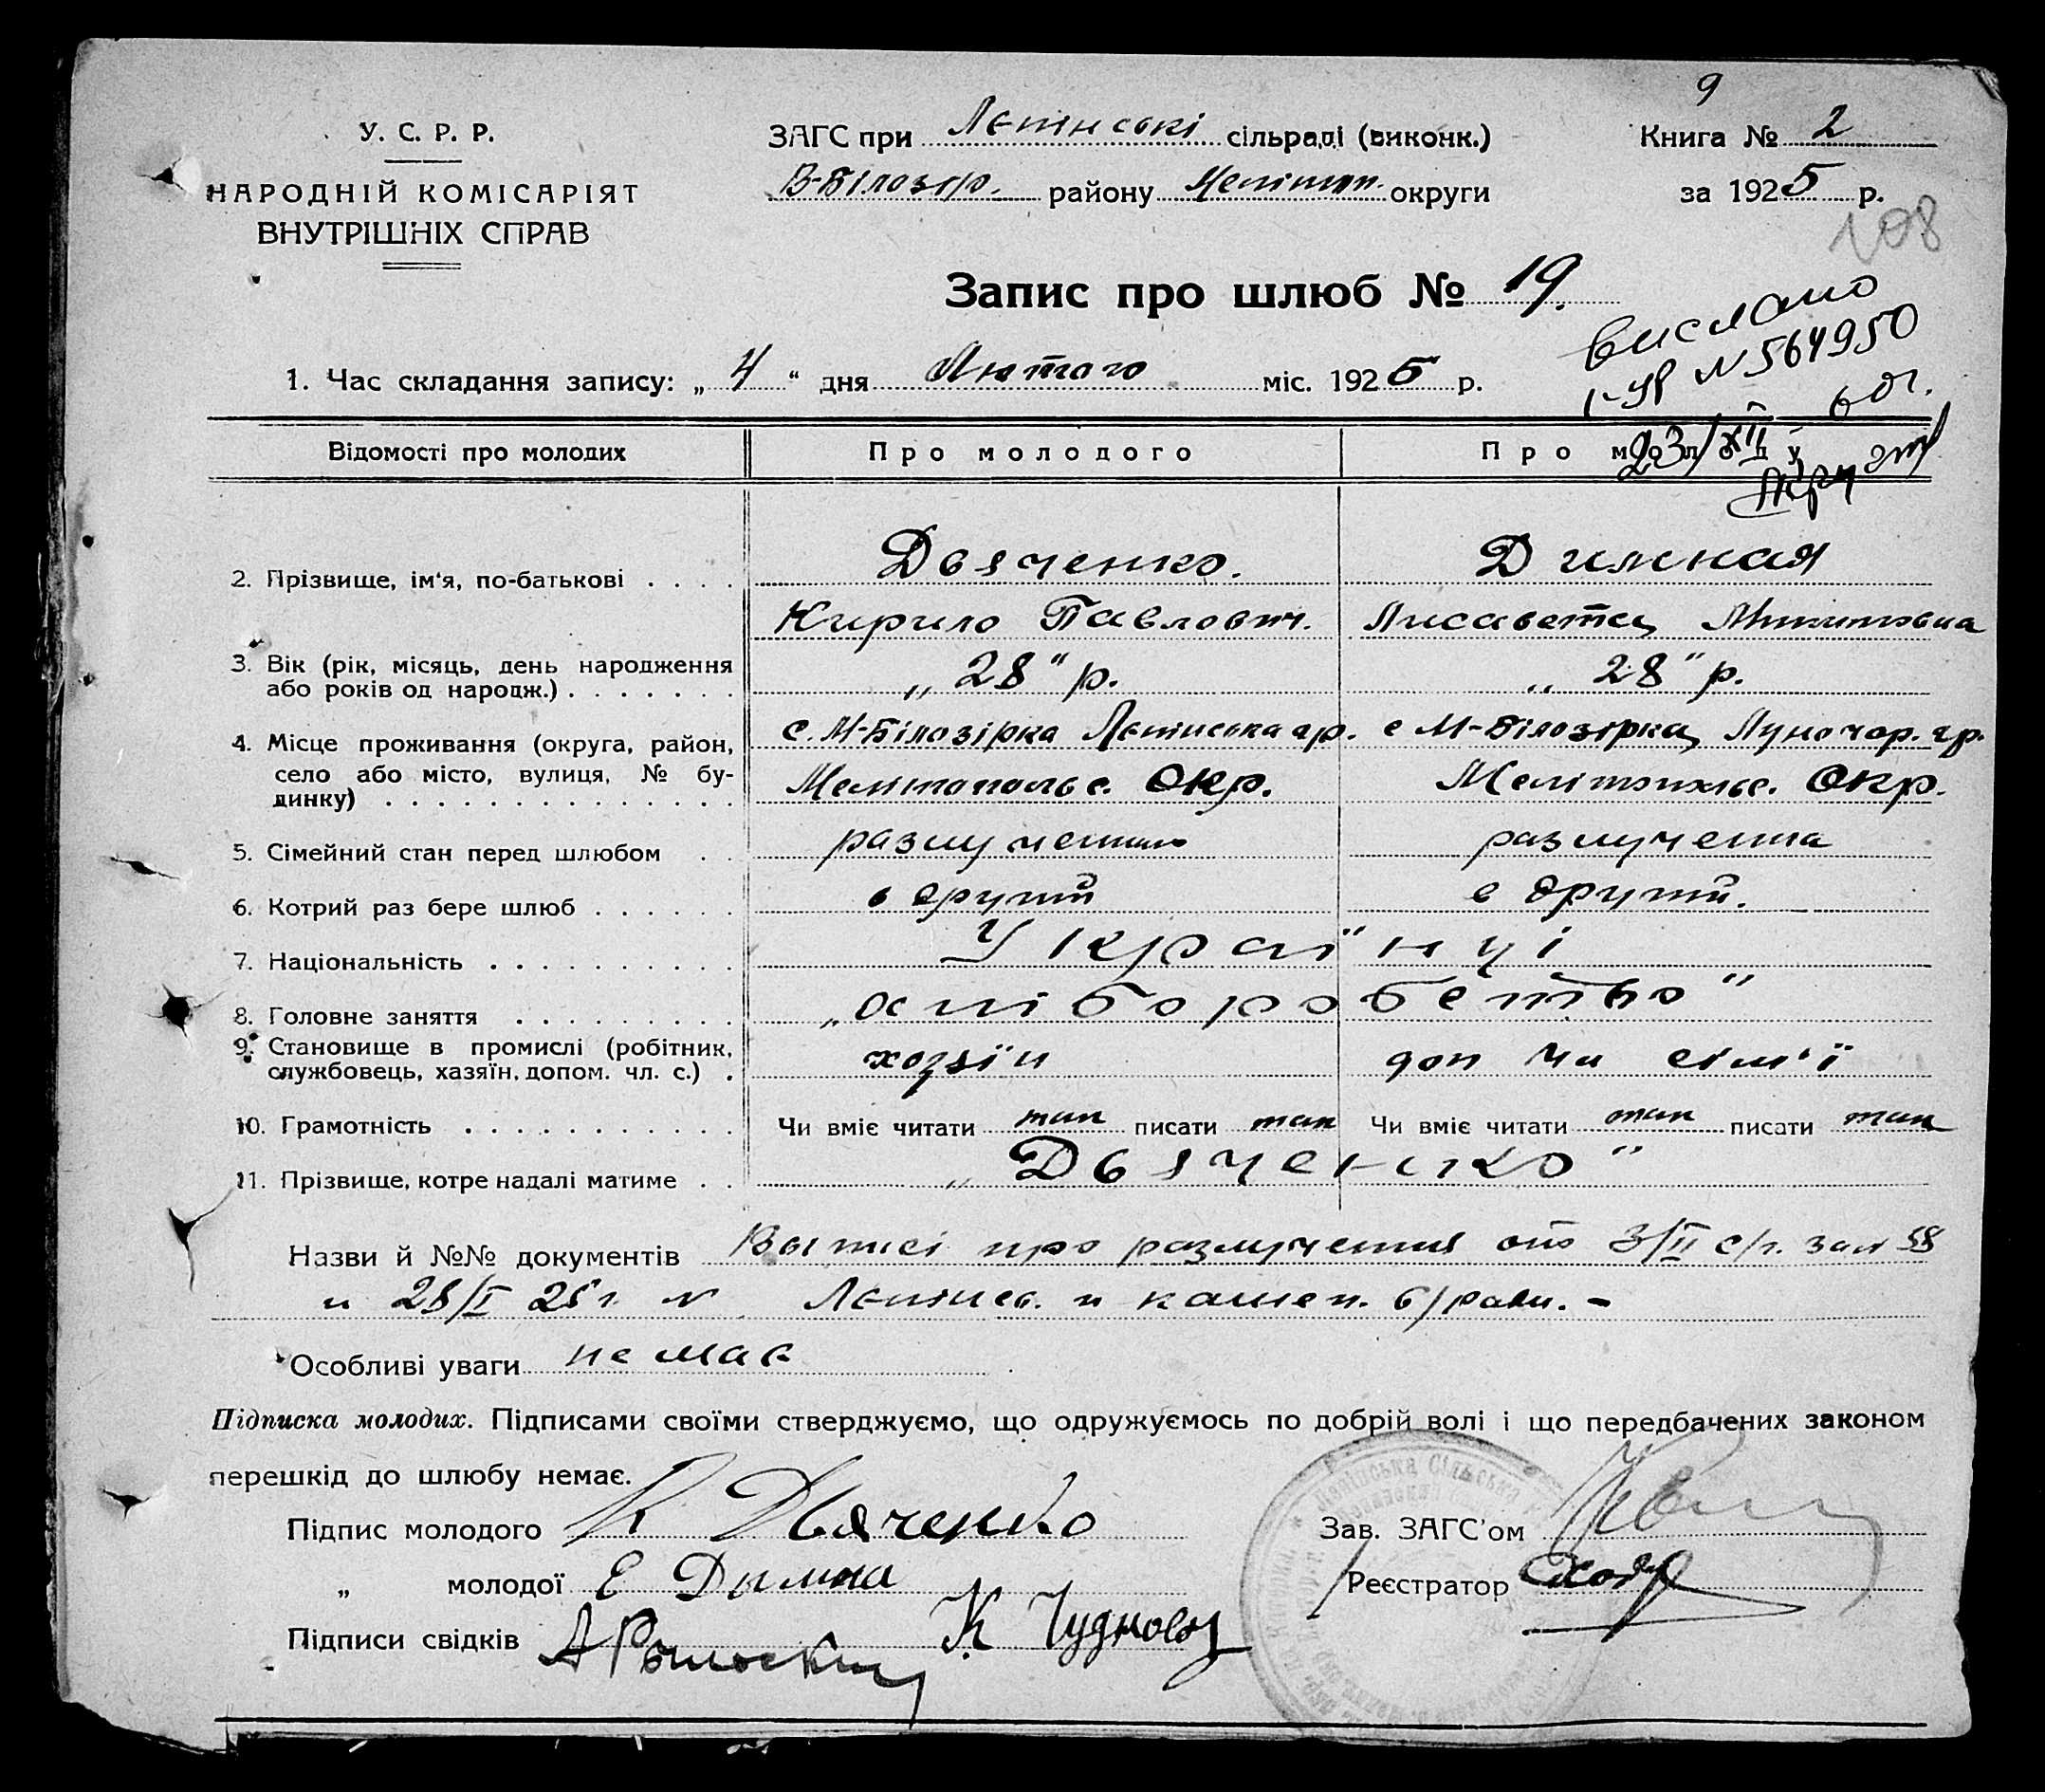 9
У. С. Р. Р.
НАРОДНІЙ КОМІСАРІЯТ
ВНУТРІШНІХ СПРАВ
ЗАГС при Лєнінські сільраді (виконк.)
В-Білозір. району Меліт. округи
Книга № 2
за 1925 р.
108
Запис про шлюб № 19.
вислано
№ 564950
1. Час складання запису: „ 4 “ дня Лютого міс. 1925 р.
23/XII
Відомості про молодих
Про молодого
Про молоду
2. Прізвище, ім'я, по-батькові . . . . Дьяченко. Димная
Кирило Павлович. Лисавета Микитовна
3. Вік (рік, місяць, день народження
або років од народж.) . . . . . . . „28" р. „28" р.
4. Місце проживання (округа, район,
село або місто, вулиця, № бу-
динку) . . . . . . . . . . . . . .
с. М-Білозірка Лєнінська гр. с М-Білозірка, Луначар. гр.
Мелітопольс. Окр. Мелітопольс. Окр.
5. Сімейний стан перед шлюбом . . размучений размученна
6. Котрий раз бере шлюб . . . . . . в другий в другий.
7. Національність . . . . . . . . . . Українці
8. Головне заняття . . . . . . . . . „хліборобство"
9. Становище в промислі (робітник,
службовець, хазяїн, допом. чл. с.) . хозяїн доп чл сім'ї
10. Грамотність . . . . . . . . . . . Чи вміє читати так писати так Чи вміє читати так писати так
11. Прізвище, котре надалі матиме . . „Дьяченко"
Назви й №№ документів Вытисі про размучення от 3/II с/г. за №
и 28/I 25 г. № Лєнінсь. и камен. с/ради. -
Особливі уваги не має
Підписка молодих. Підписами своїми стверджуємо, що одружуємось по добрій волі і що передбачених законом
перешкід до шлюбу немає.
Підпис молодого К Дьяченко
Зав. ЗАГС'ом
„ молодої Е Дымна
Реєстратор
Підписи свідків К Чуднов
Ленінська Сільська